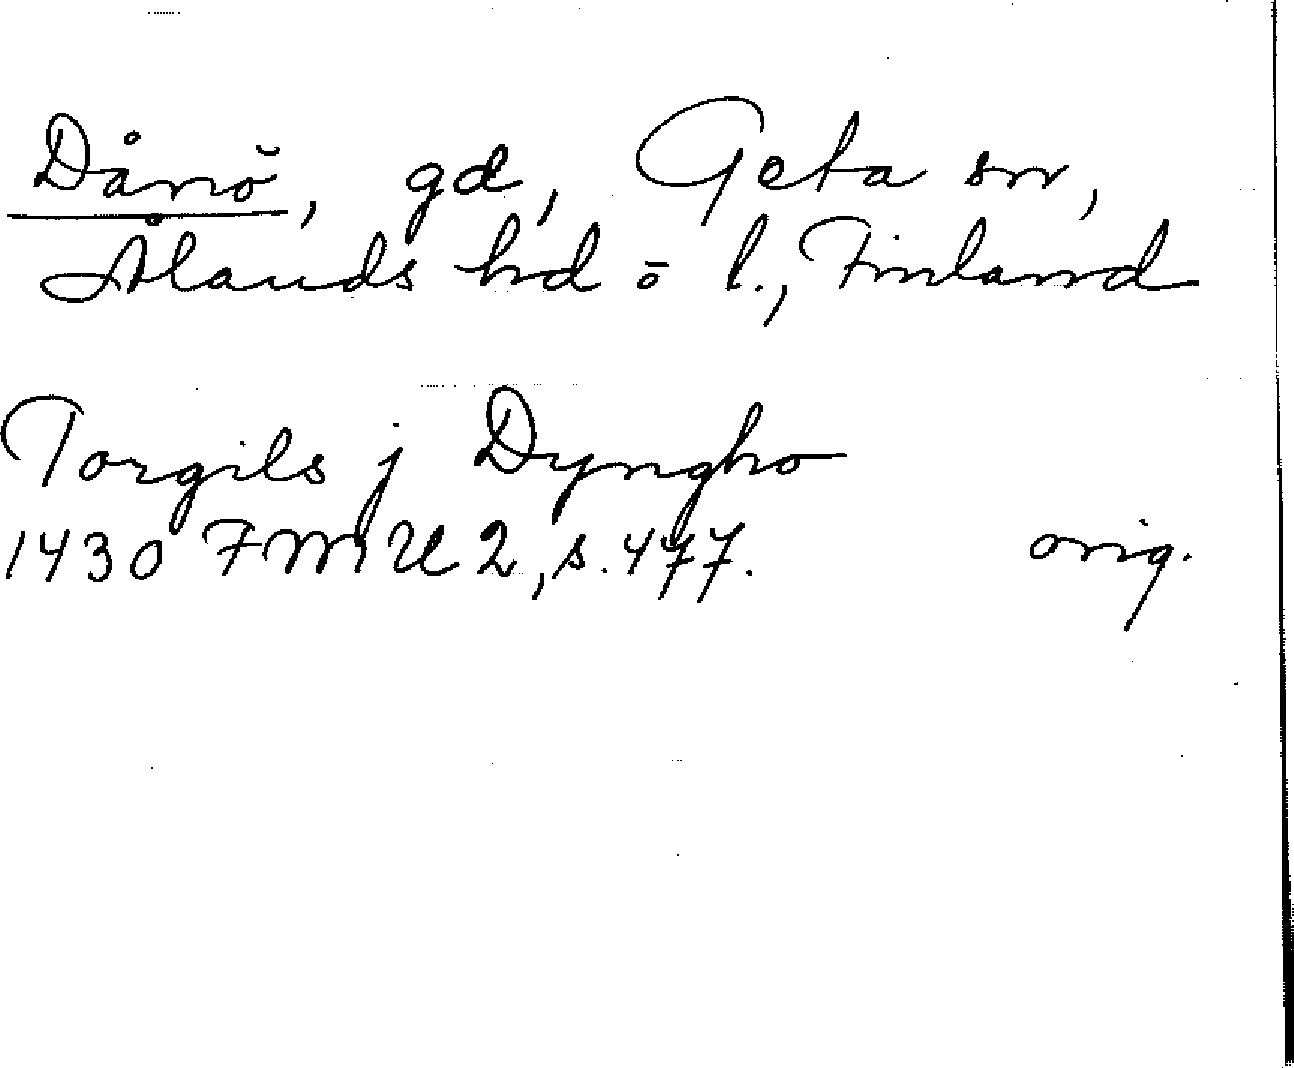 Dånö, gd, Geta sn,
Ålands hd ö l., Finland
Torgils j Dyngho
1430 FMU 2, s. 477. orig.